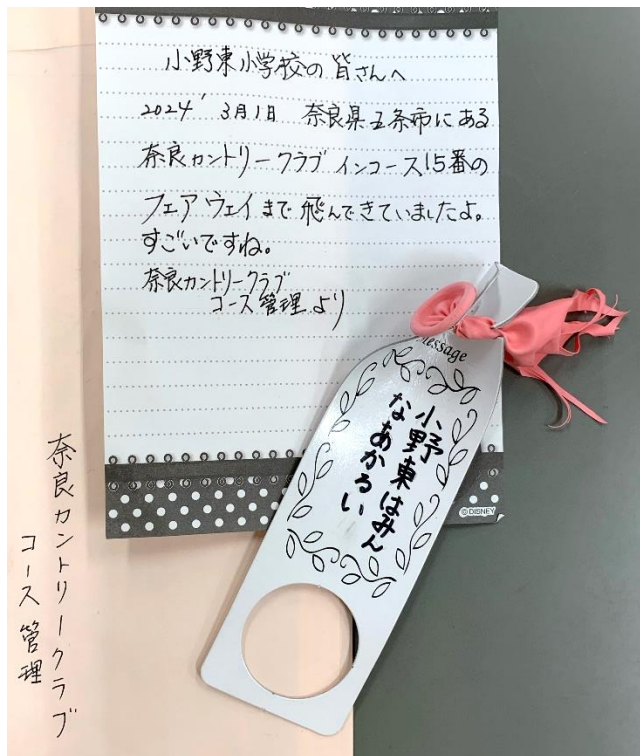 小野東小学校の皆さんへ
2024' 3月1日 奈良県五条市にある
奈良カントリークラブ インコース15番の
フェアウェイまで飛んできていましたよ。
すごいですね。
奈良カントリークラブ
コース管理より
message
小野東はみん
なあかるい
©DISNEY
奈良カントリークラブ
コース管理